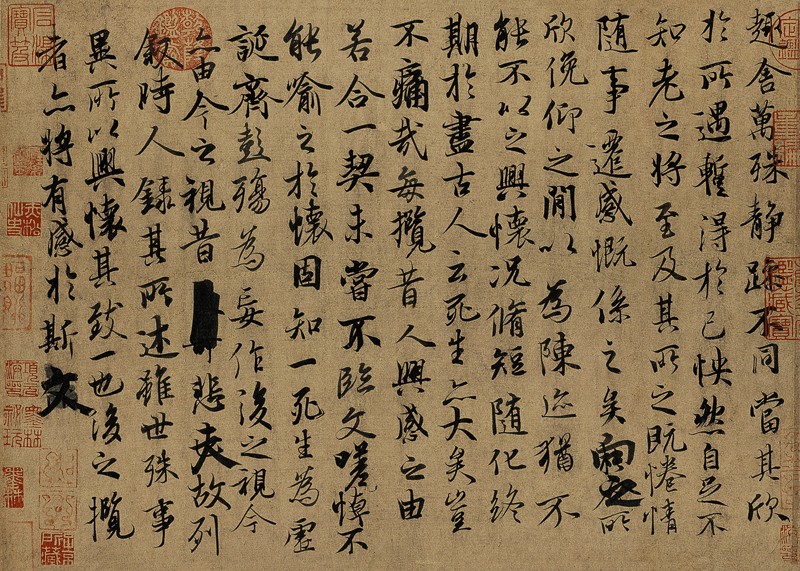 趣舍萬殊静躁不同當其欣
於所遇蹔得於己怏然自足不
知老之將至及其所之既惓情
随事遷感慨係之矣向之所
欣俛仰之閒以為陳迹猶不
能不以之興懷況脩短随化終
期於盡古人云死生亦大矣豈
不痛哉每攬昔人興感之由
若合一契未嘗不臨文嗟悼不
能喻之於懷固知一死生為虚
誕齊彭殤為妄作後之視今
亦由今之視昔悲夫故列
叙時人録其所述雖世殊事
異所以興懷其致一也後之攬
者亦將有感於斯文